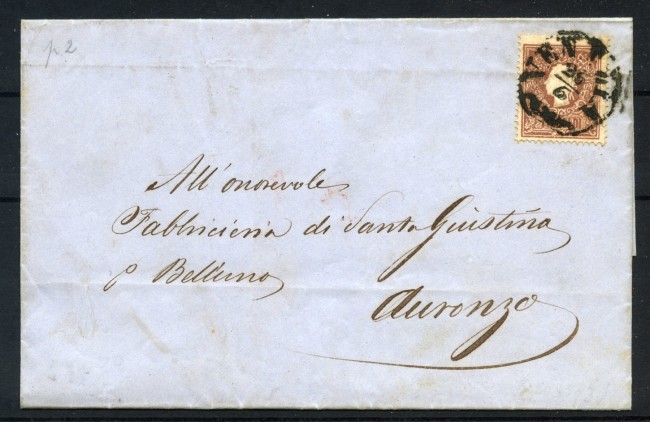 p. 2
VENEZIA
All'onorevole
Fabbricieria di Santa Giustina
p Belluno
Auronzo